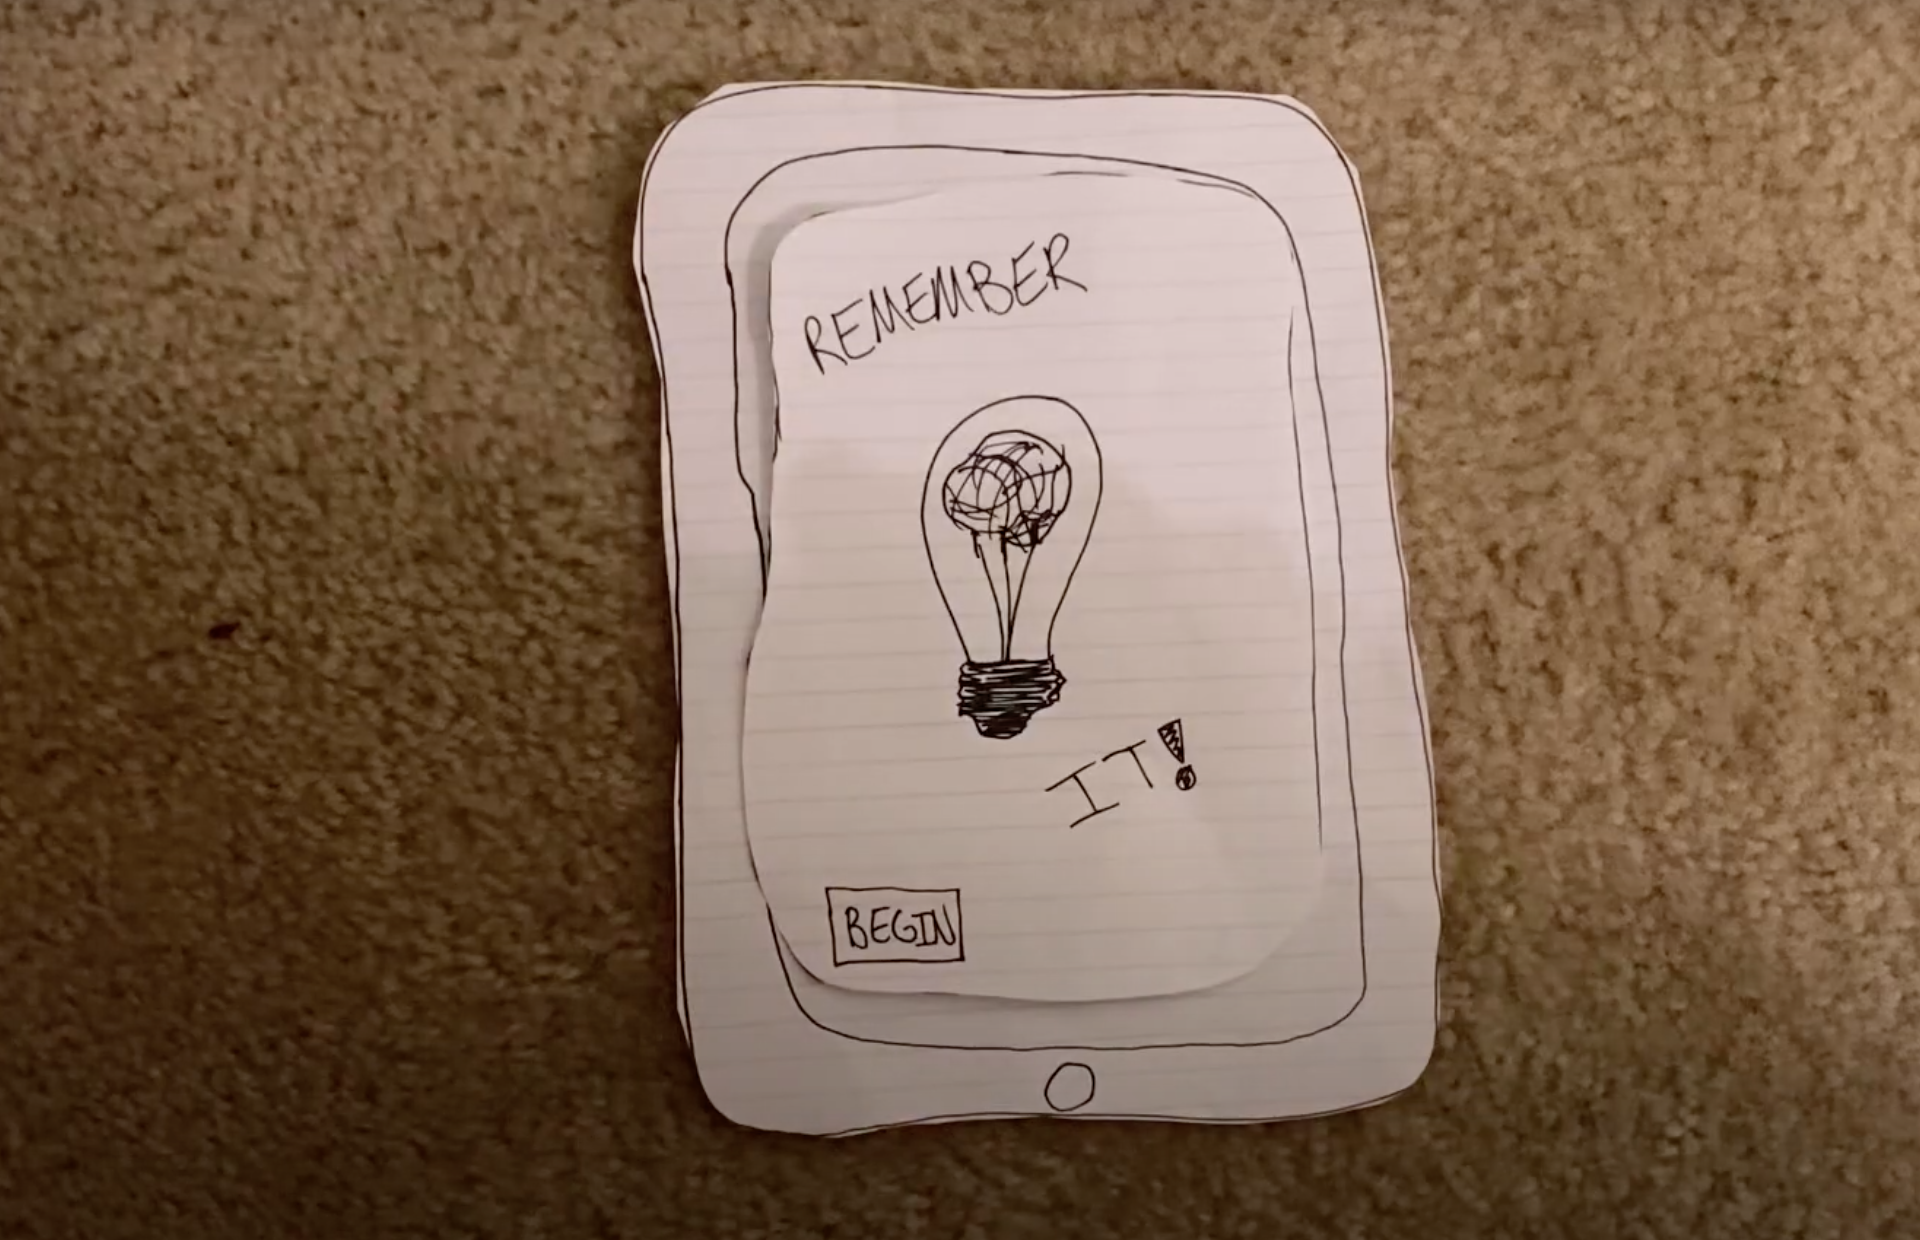 REMEMBER
IT!
BEGIN